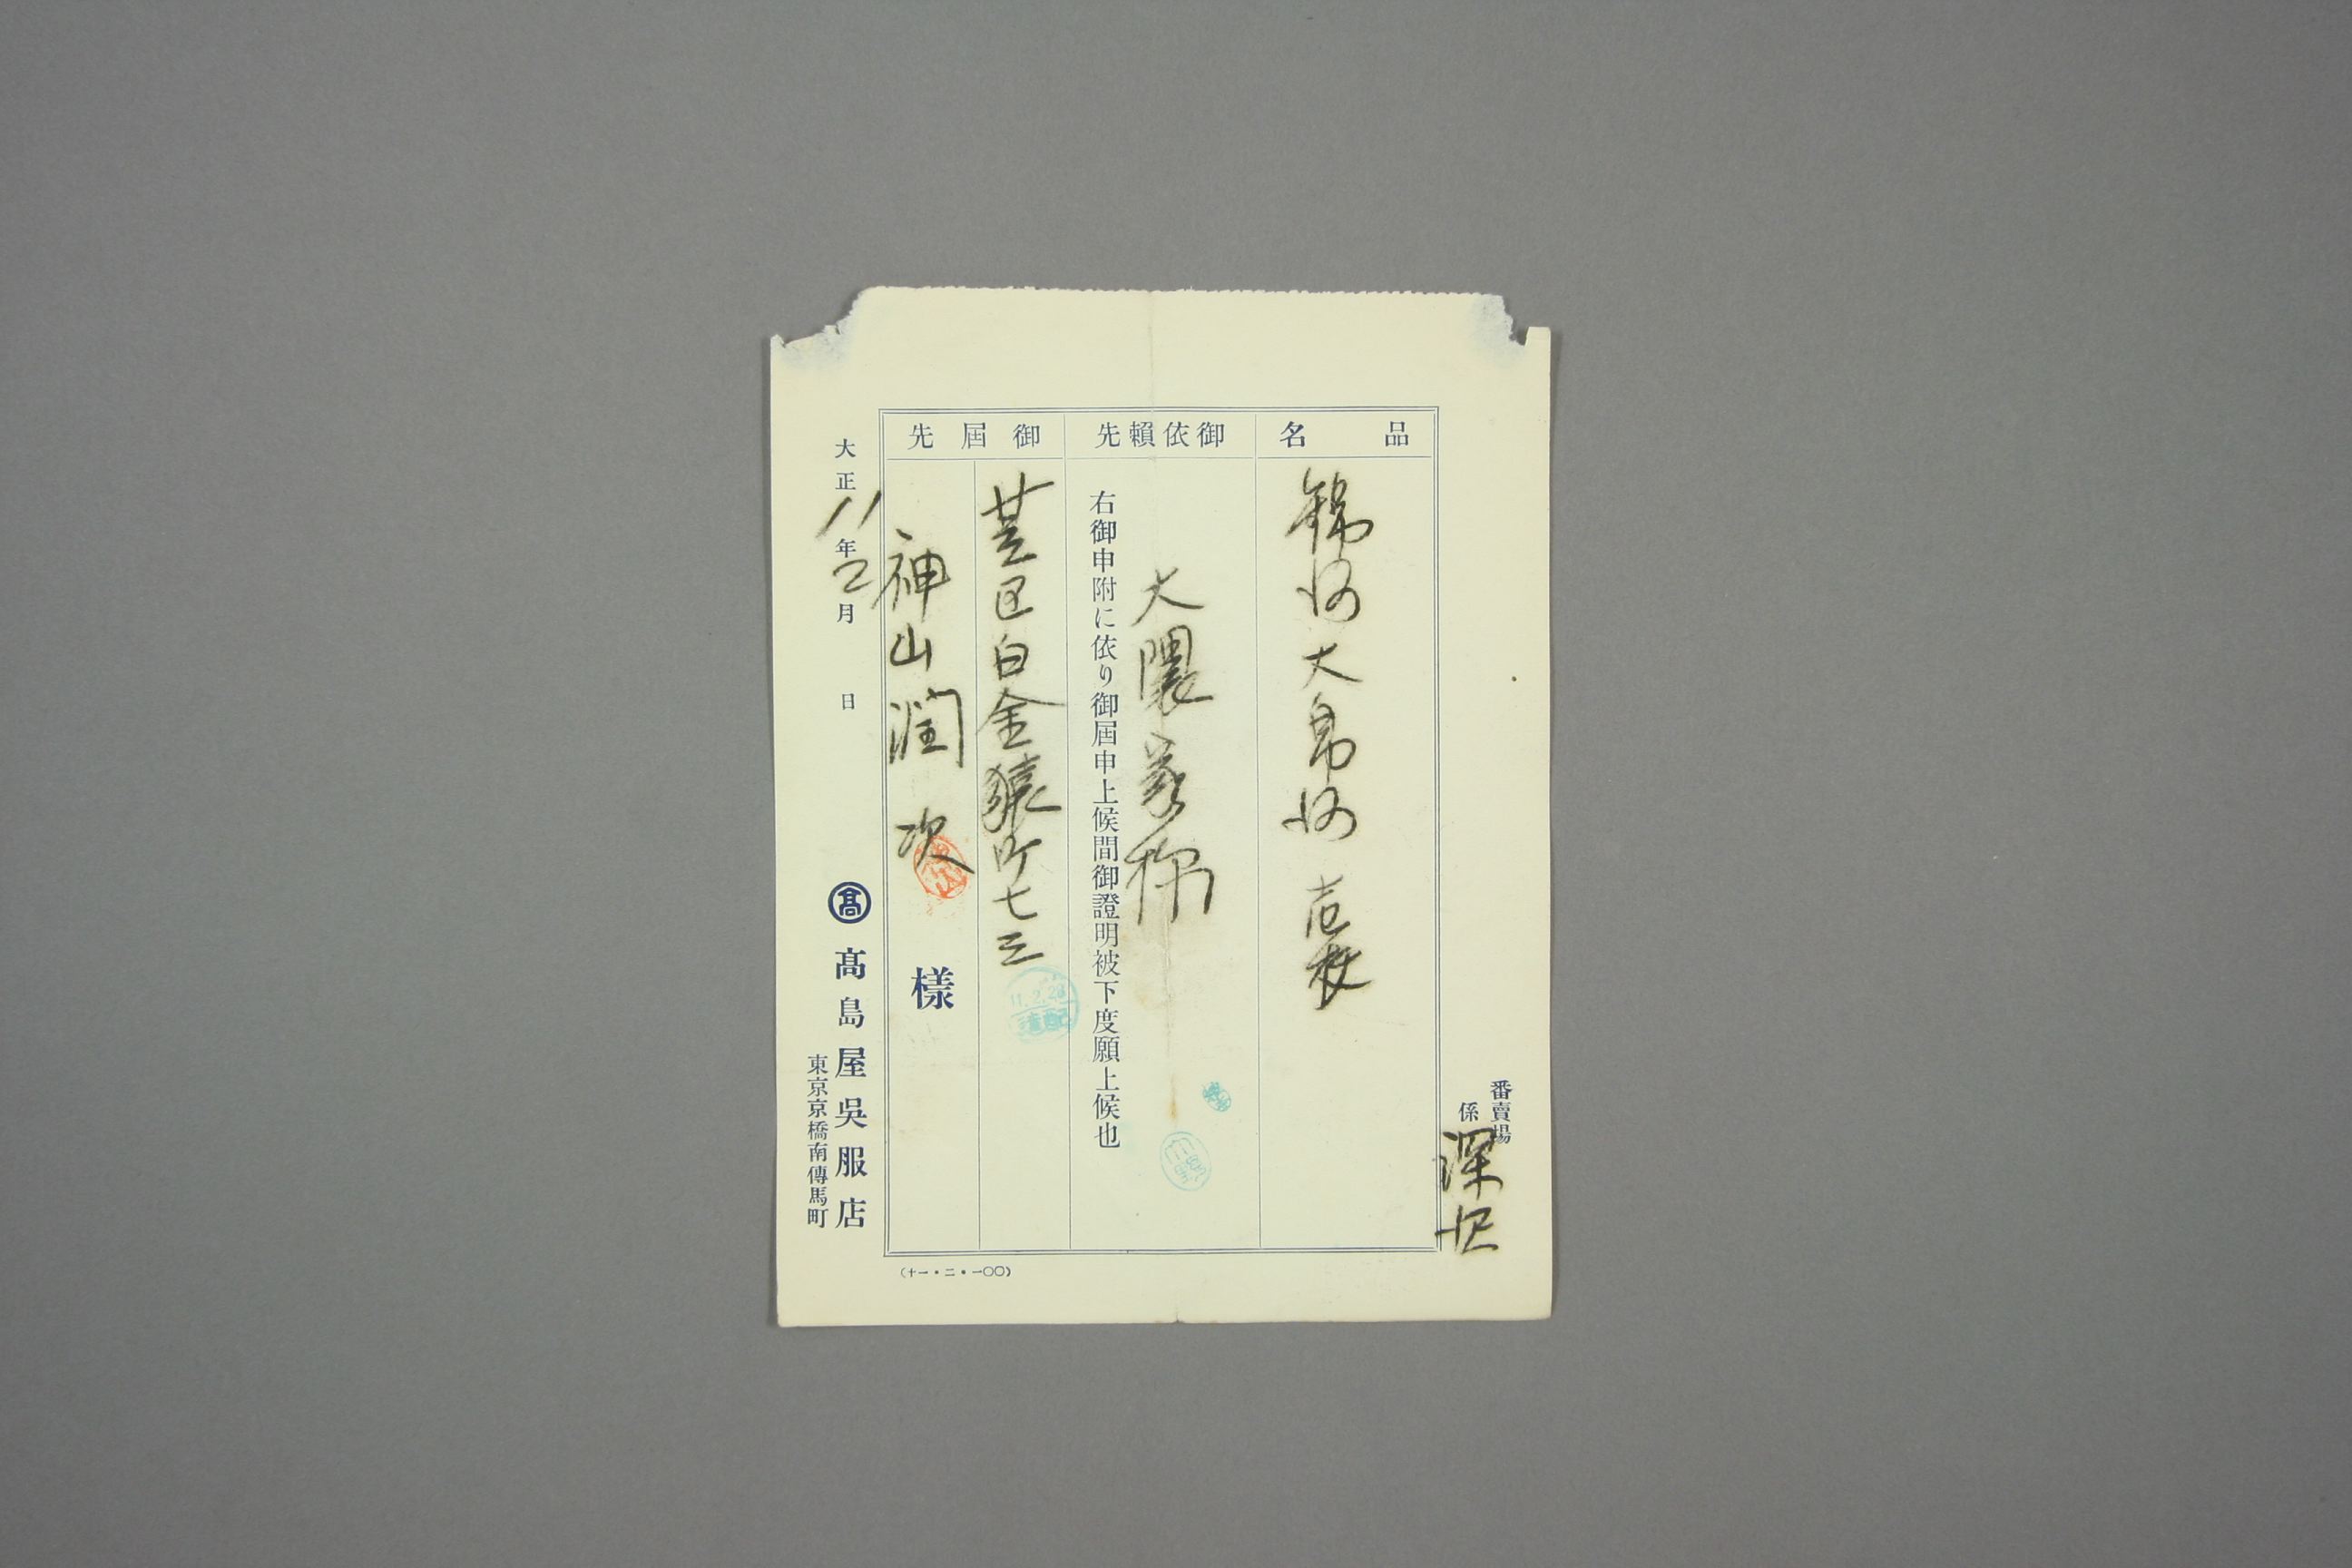 番賣場
係
深沢
品名
錦地大帛地 壱枚
御依賴先
大隈家様
右御申附に依り御屆申上候間御證明被下度願上候也
御屆先
芝区白金猿町七三
神山潤次
様
大正11年2月 日
髙
髙島屋吳服店
東京京橋南傳馬町
(十一・二・一〇〇)